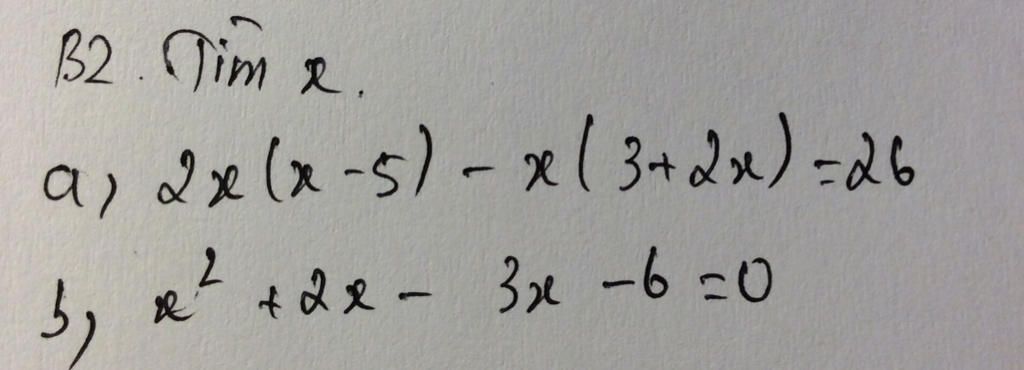 B2. Tìm x.
a, 2x(x-5) - x(3+2x) = 26
b, x² + 2x - 3x - 6 = 0